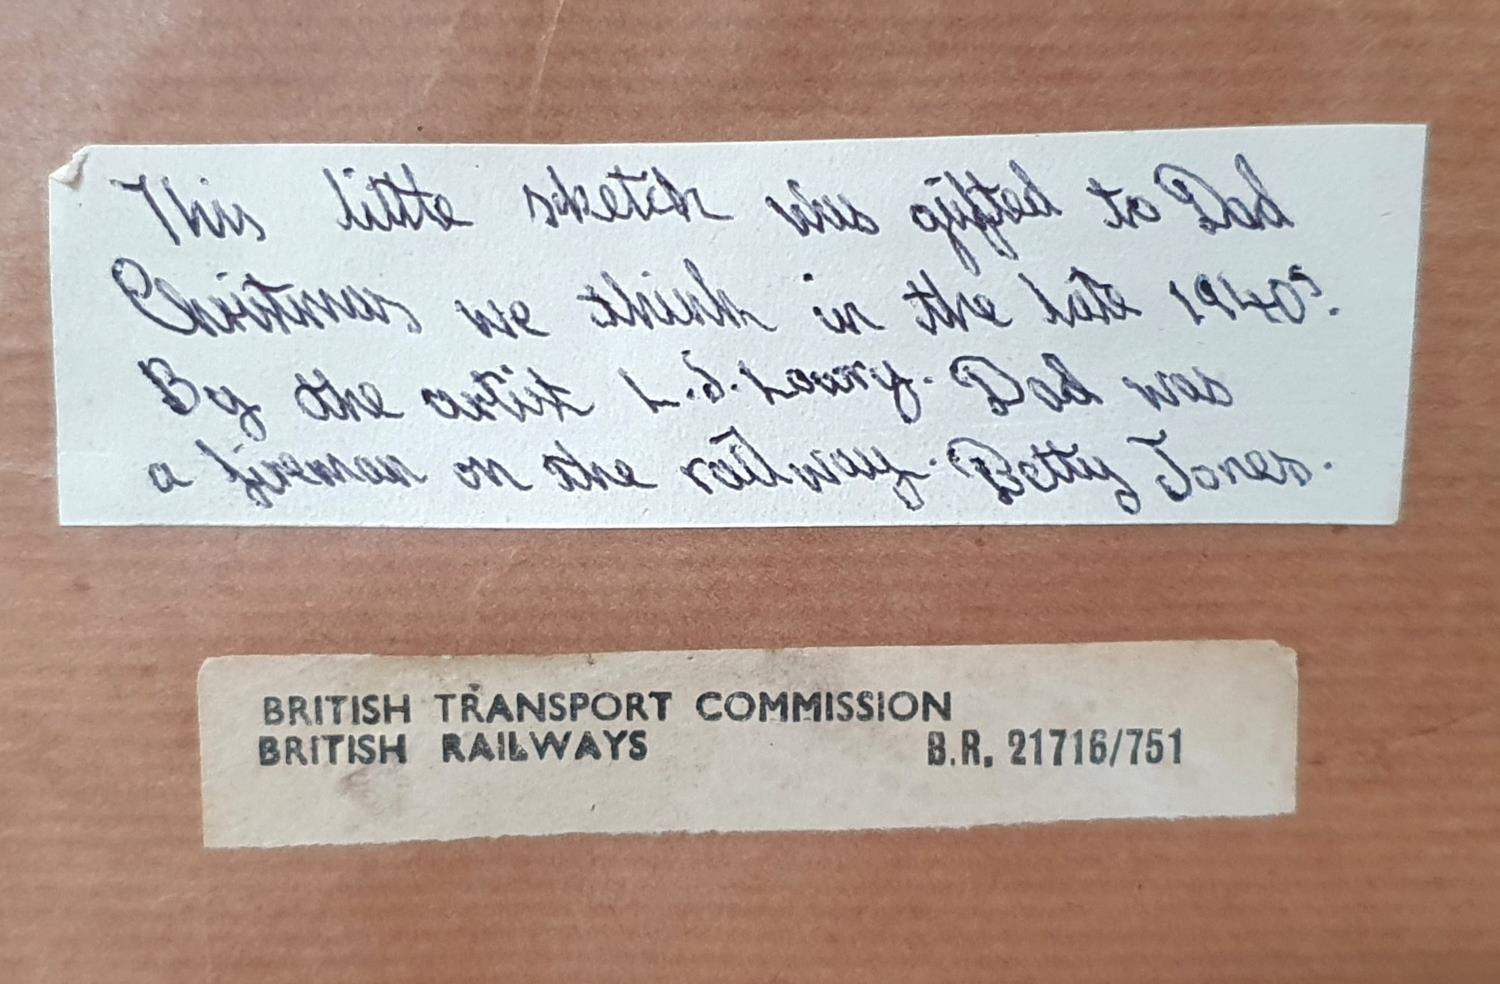 This little sketch was gifted to Dad
Christmas we think in the late 1940s.
By the artist L.S. Lowry. Dad was
a fireman on the railway. Betty Jones.
BRITISH TRANSPORT COMMISSION
BRITISH RAILWAYS B.R. 21716/751